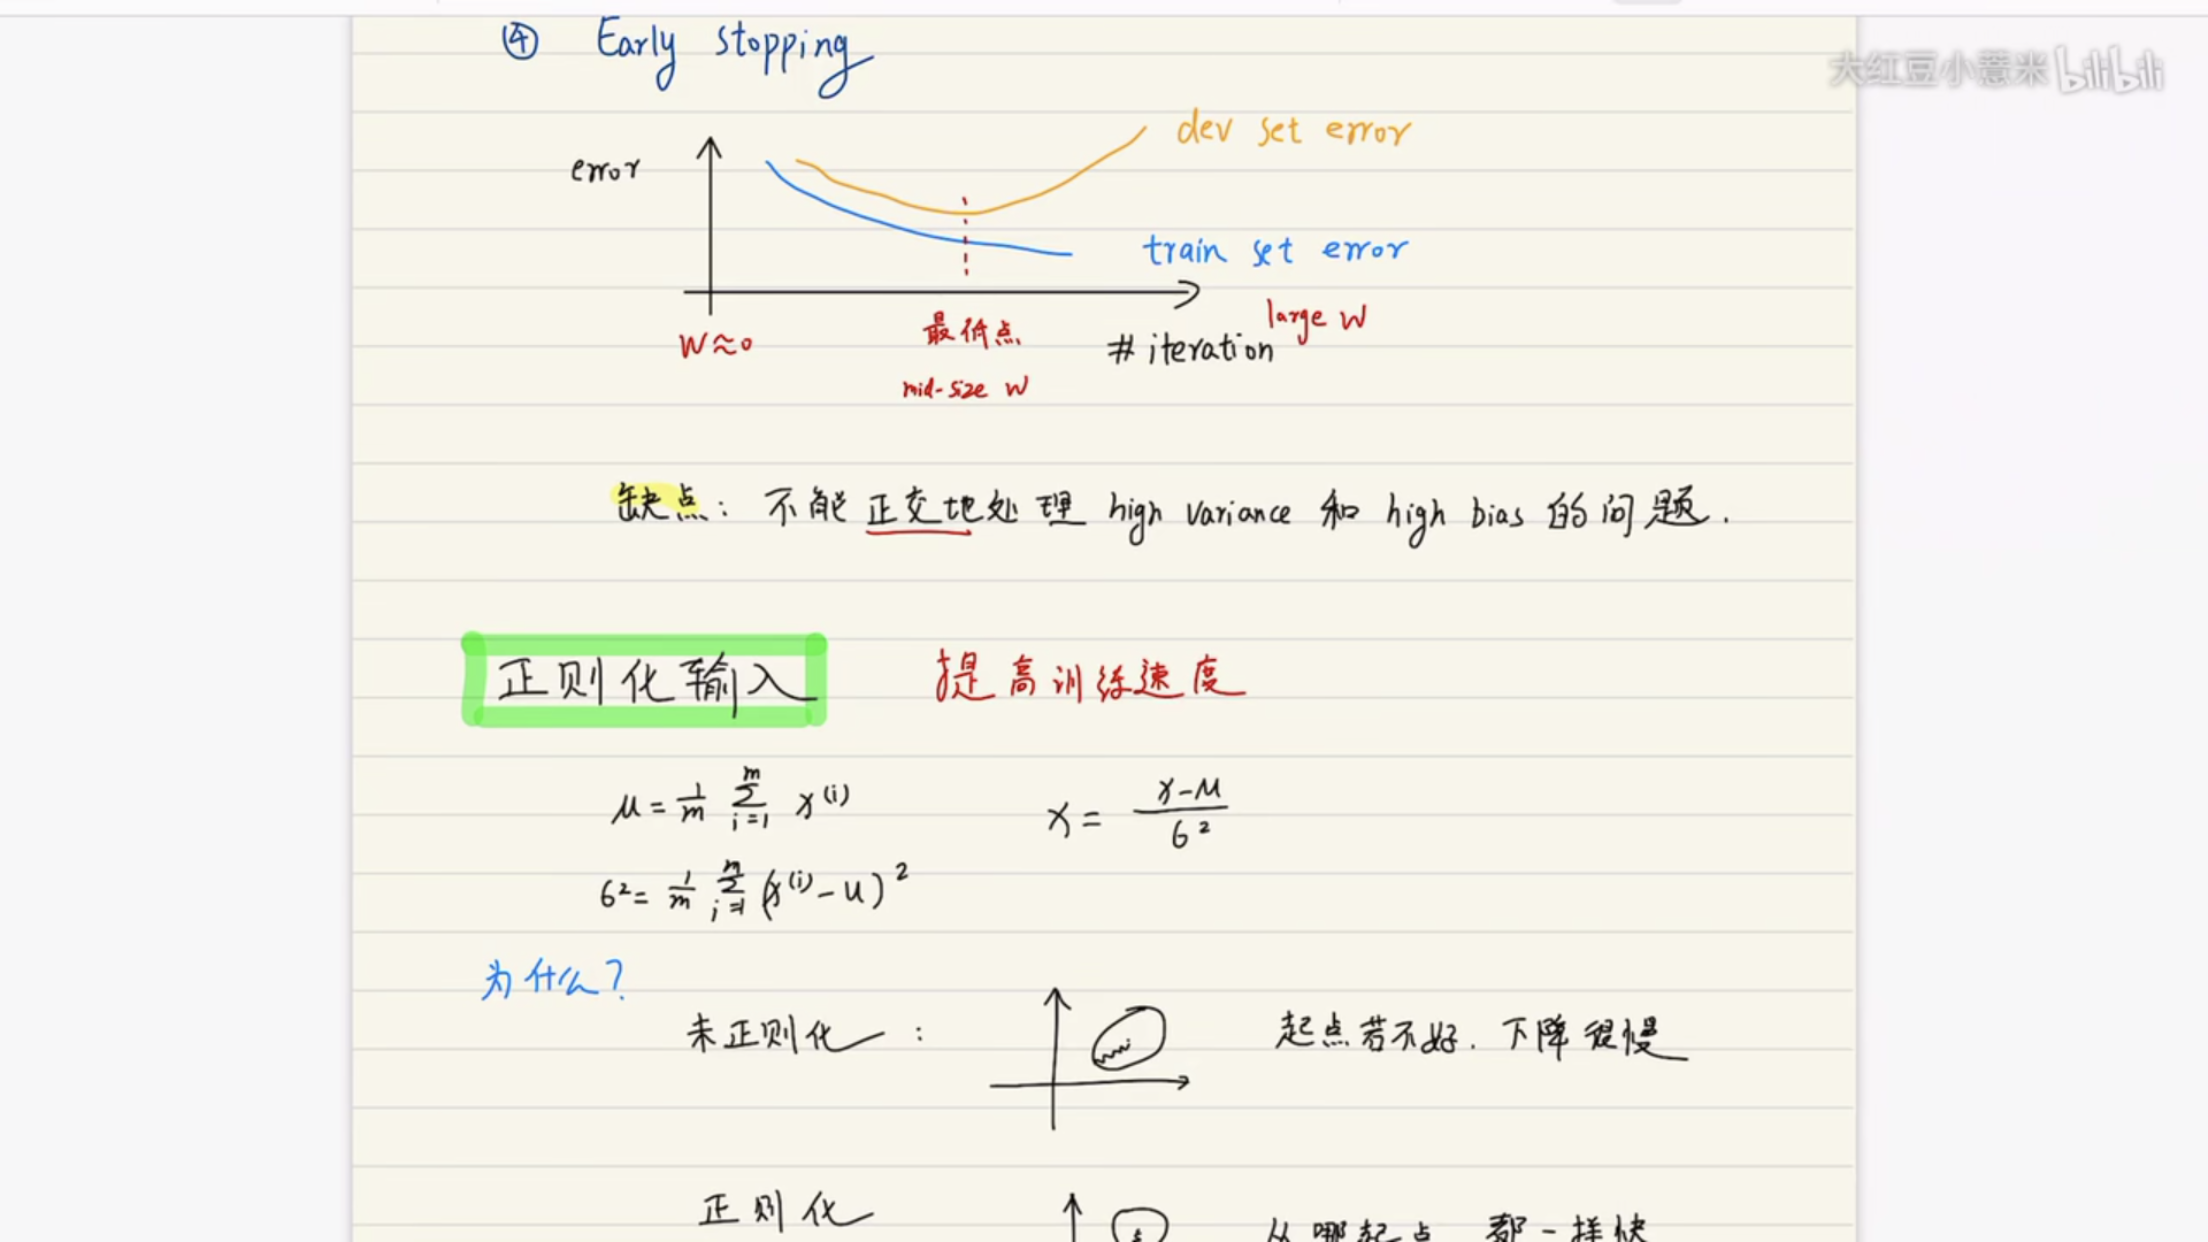 ④ Early stopping
大红豆小薏米 bilibili
dev set error
error
train set error
large w
w≈0
最低点
# iteration
mid-size w
缺点：不能正交地处理 high variance 和 high bias 的问题.
正则化输入 提高训练速度
μ = 1/m Σ_{i=1}^{m} x^{(i)}
x = (x-μ)/σ²
σ² = 1/m Σ_{i=1}^{m} (x^{(i)} - u)²
为什么？
未正则化：
起点若不好. 下降很慢
正则化
从哪起点 都一样快